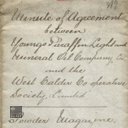 Minute of Agreement
between
Young's Paraffin Light and
Mineral Oil Company Ld
and the
West Calder Co-operative
Society Limited
Powder Magazine